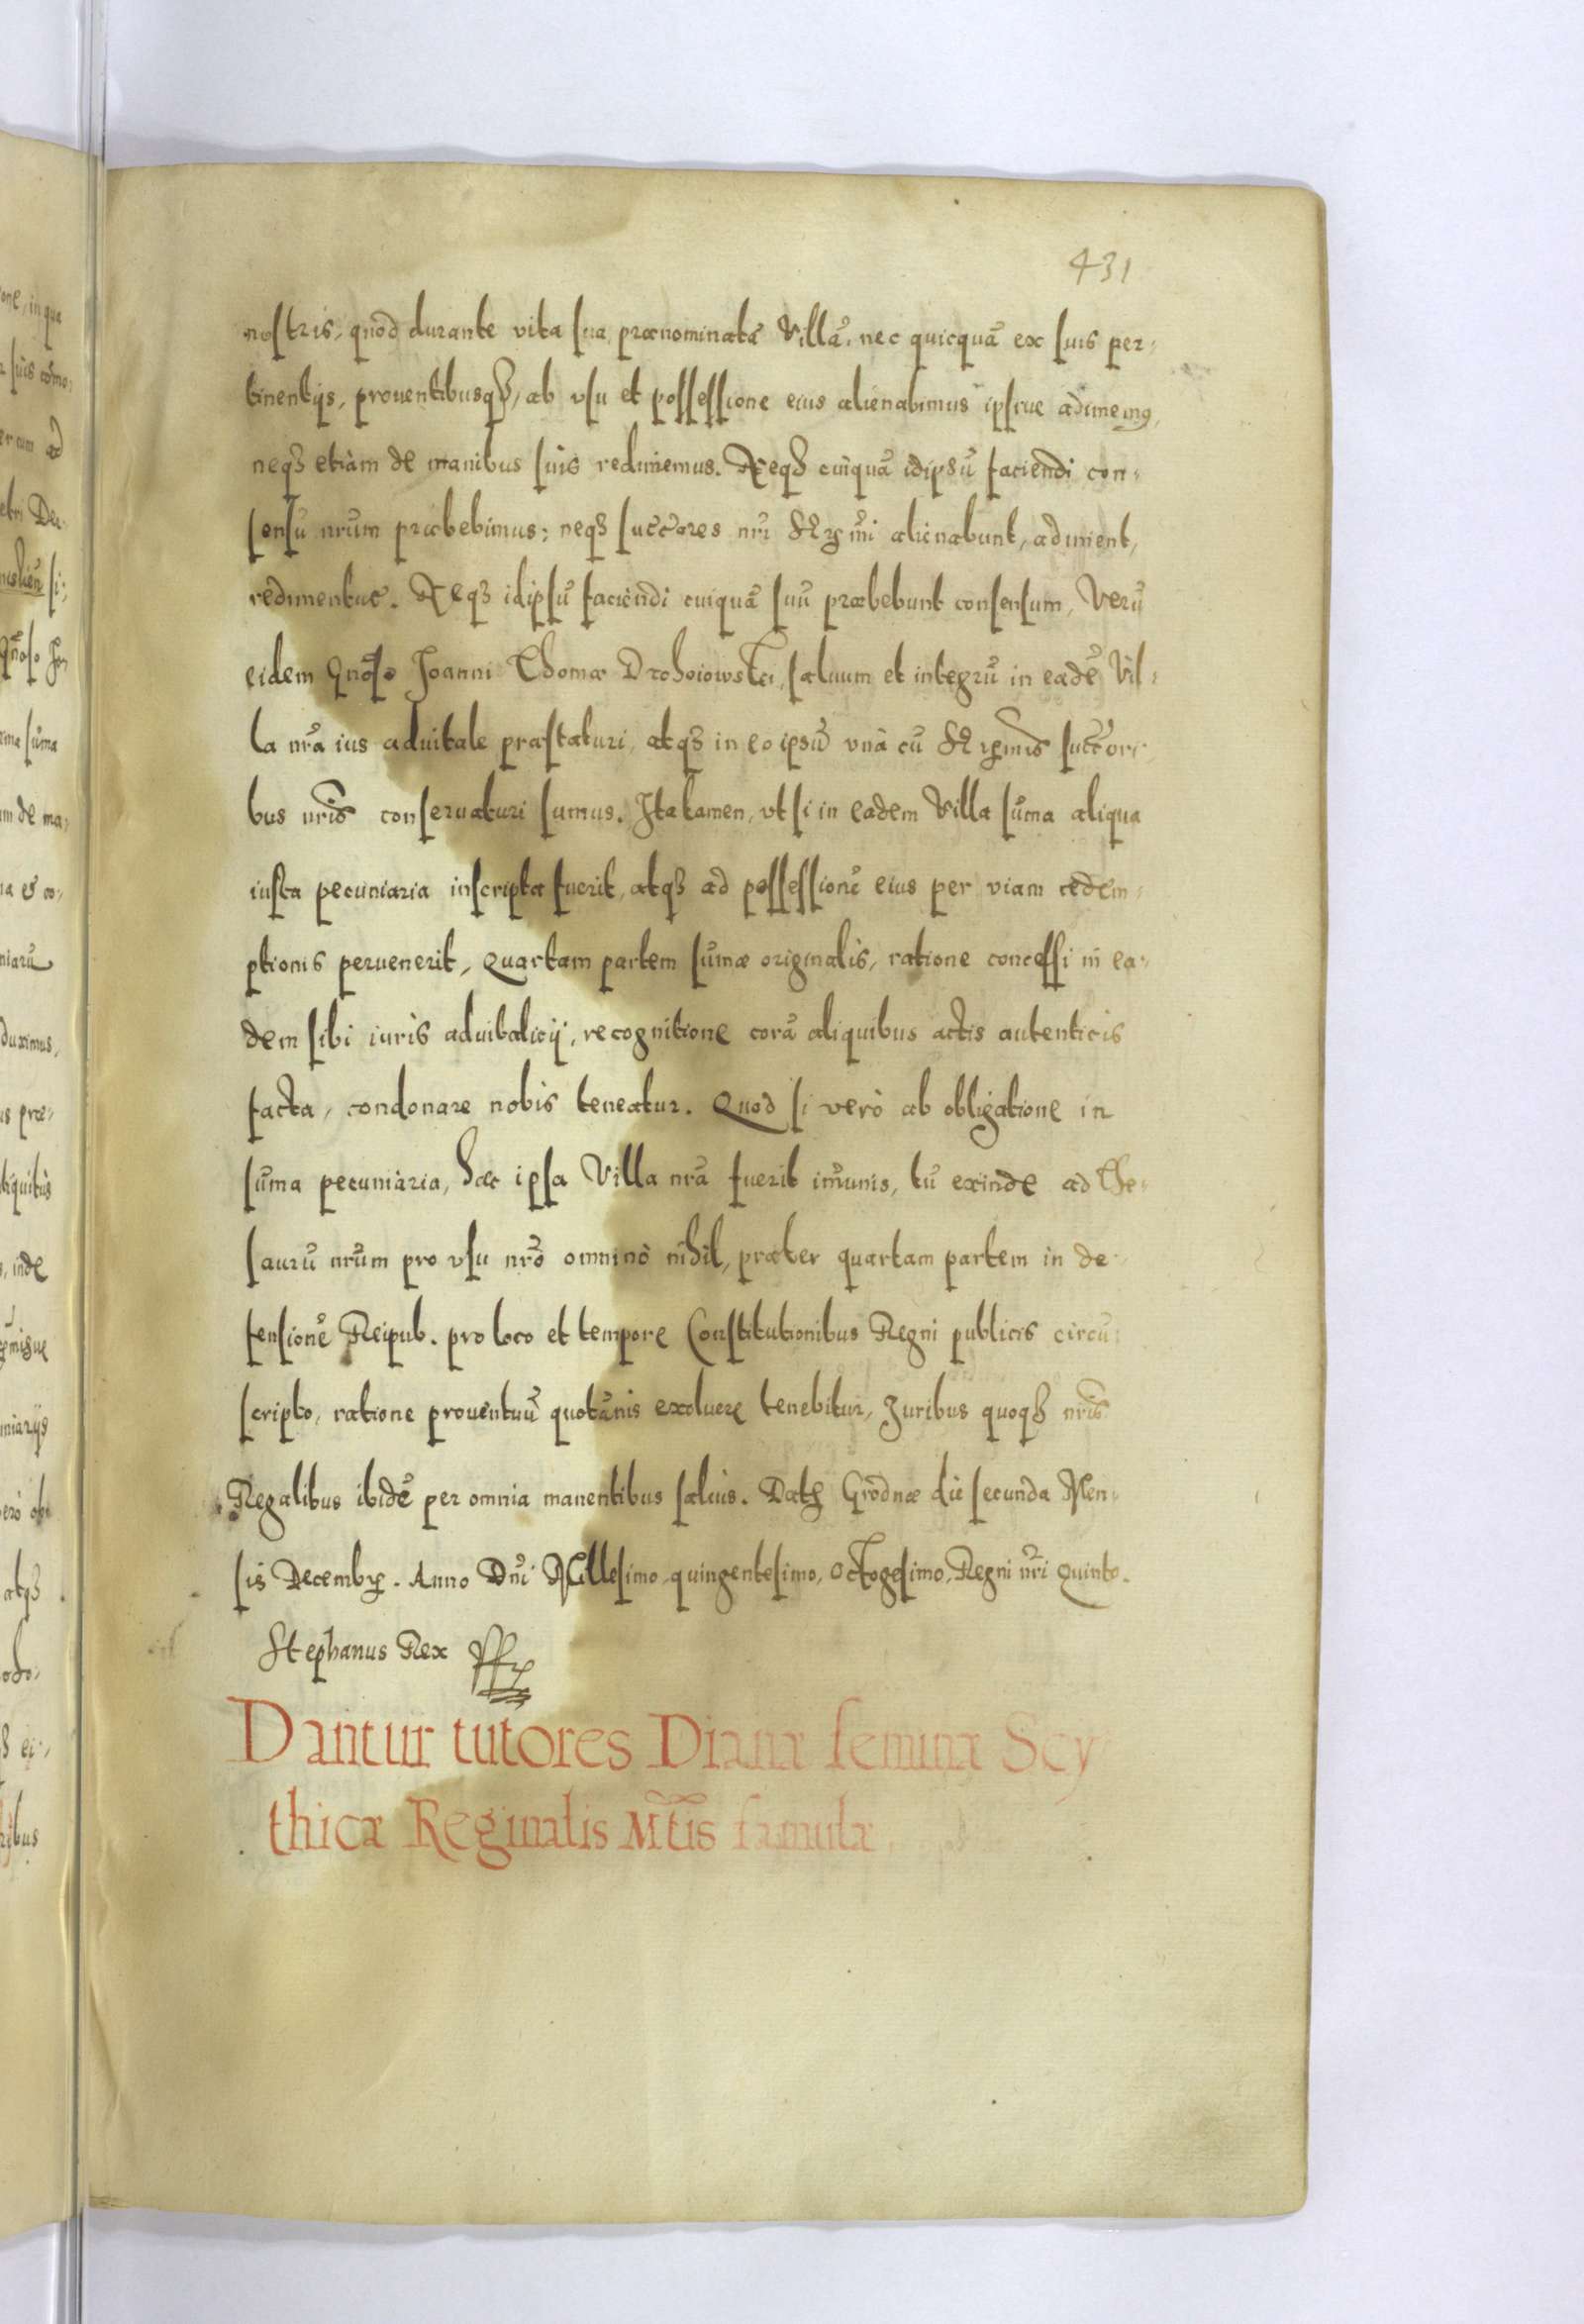 431
nostris, quod durante vita sua, prænominatã Villã, nec quicquã ex suis per-
tinentijs, prouentibusq₃, ab vsu et possessione eius alienabimus ipsiue adimem₉,
neq₃ etiàm de manibus suis redimemus. Neq₃ cuiquã idipsũ faciendi con-
sensũ nr̃um præbebimus; neq₃ succ̃ores nr̃i Sermi alienabunt, adiment,
rediment
ue. Neq₃ idipsũ faciendi cuiquã suũ præbebunt consensum, Verũ
eidem Gnoso Joanni Thomæ Drohoiowski, saluum et integrũ in eadẽ Vil-
la nr̃a ius aduitale præstaturi, atq₃ in eo ipsũ vnà cũ Sermis succ̃ori-
bus nr̃is conseruaturi sumus. Ita tamen, vt si in eadem Villa sũma aliqua
iusta pecuniaria inscripta fuerit, atq₃ ad possessionẽ eius per viam redem-
ptionis peruenerit, Quartam partem sũmæ originalis, ratione concessi in ea-
dem sibi iuris aduitalicij, recognitione corã aliquibus actis autenticis
facta, condonare nobis teneatur. Quod si verò ab obligatione in
sũma pecuniària, hæc ipsa Villa nr̃a fuerit im̃unis, tũ exinde ad The-
saurũ nr̃um pro vsu nr̃o omninò nihil, præter quartam partem in de-
fensionẽ Reipub. pro loco et tempore Constitutionibus Regni publicis circũ-
scripto, ratione prouentuũ quotãnis exoluere tenebitur, Juribus quoq₃ nr̃is
Regalibus ibidẽ per omnia manentibus saluis. Datũ Grodnæ die secunda Men-
sis Decembr. Anno Dñi Millesimo quingentesimo, Octogesimo, Regni nr̃i Quinto.
Stephanus Rex
Dantur tutores Dianæ feminæ Scy
thicæ Reginalis Mt̃is famulæ